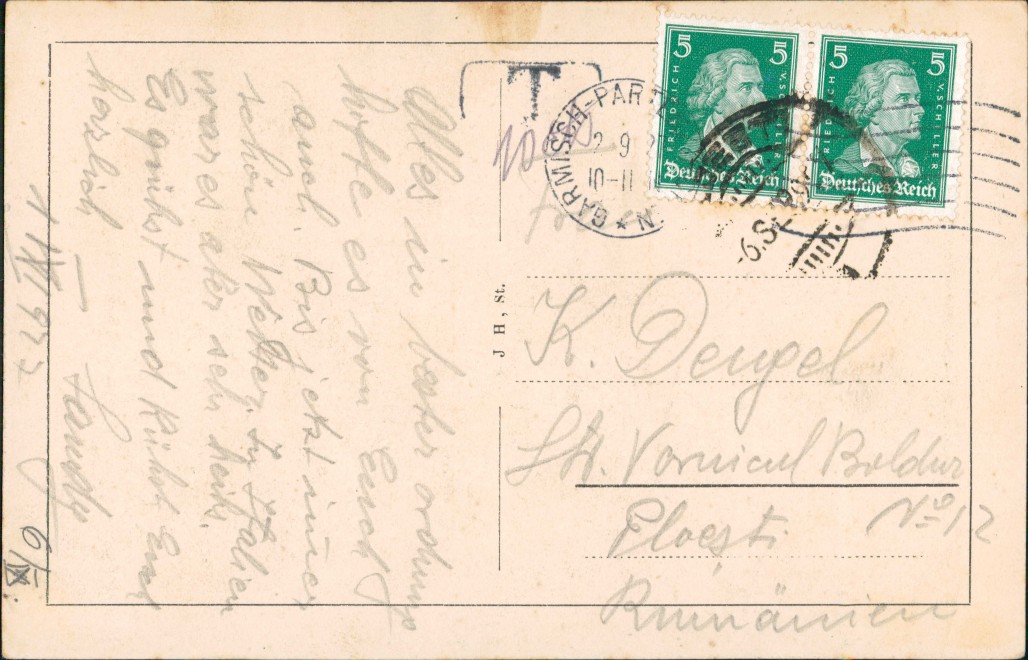 Alles in bester ordnung
hoffe es von Euch
auch. Bis jetzt immer
schön Wetter. In Italien
war es aber sehr heiß.
Es grüßt und küßt Euch
herzlich
6/IX
T
10
GARMISCH-PAR
2 9
10-11
N
5 5
FRIEDRICH V. SCHILLER
Deutsches Reich
5 5
FRIEDRICH V. SCHILLER
Deutsches Reich
6. S
J H, St.
K. Dengel
Str. Vornicul Boldur
No 12
Ploești
Rumänien